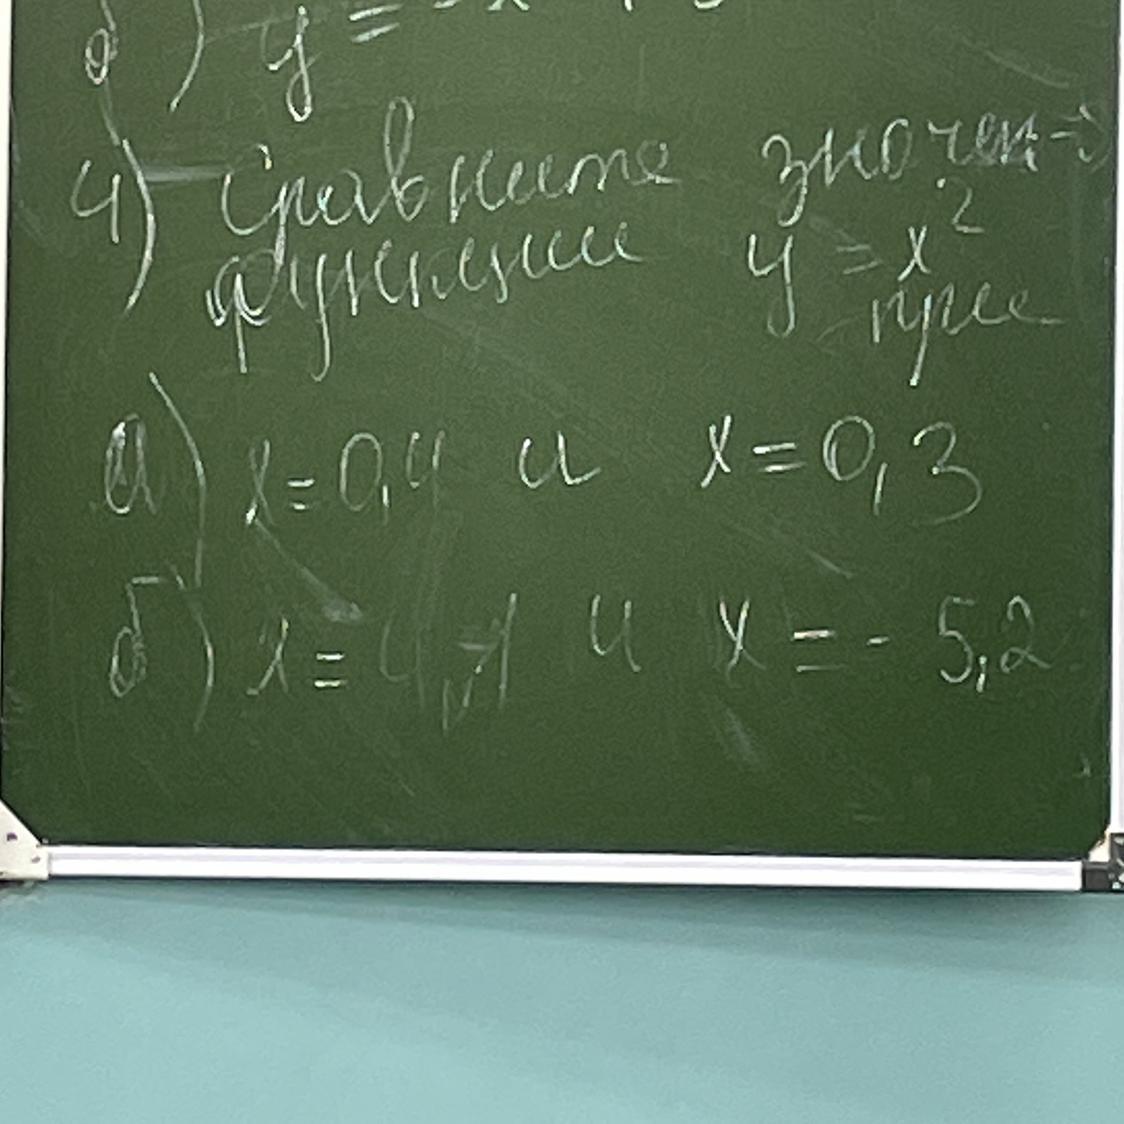 б) y = -x
4) Сравните значен-я
функции y = x²
при
а) x = 0,4 и x = 0,3
б) x = 4,1 и x = - 5,2